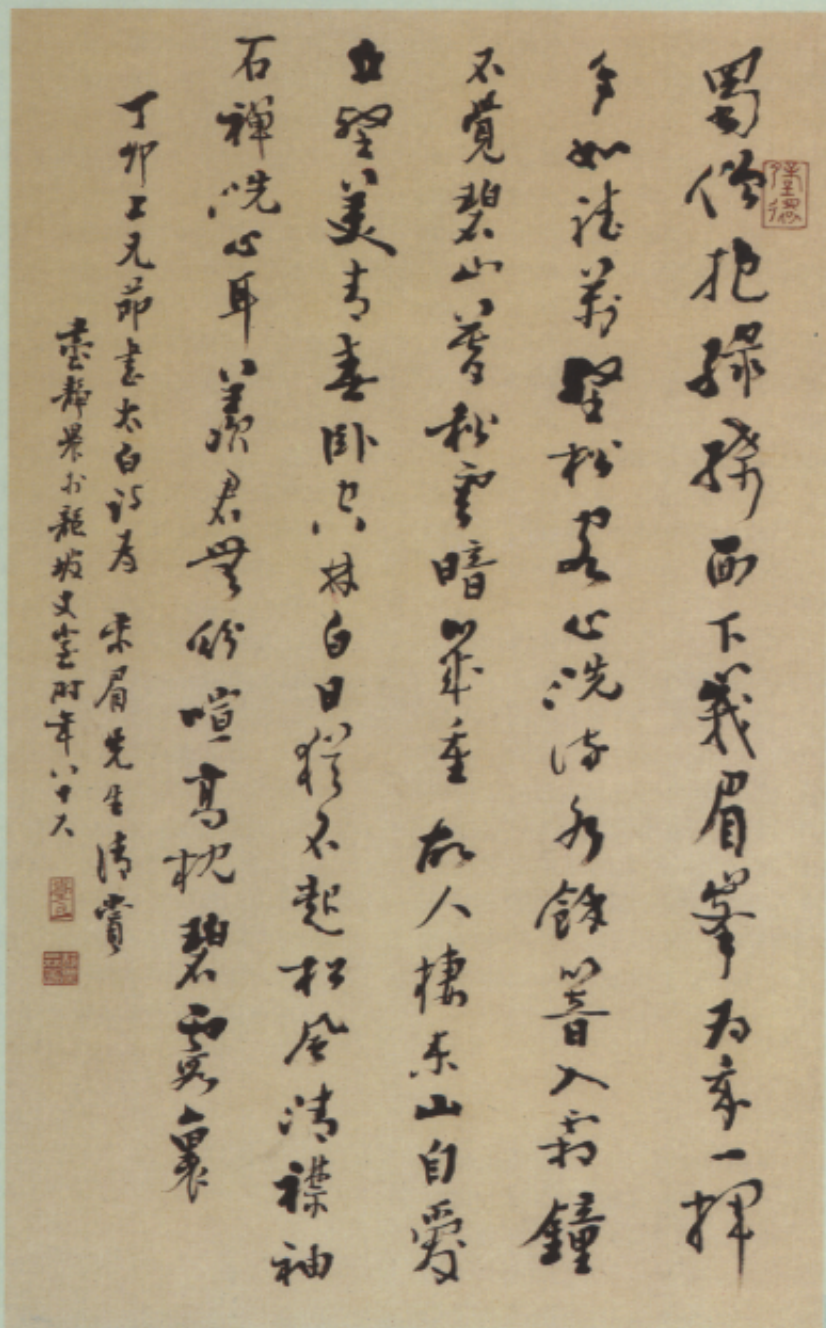 蜀僧抱綠綺西下峩眉峯為我一揮
手如聽萬壑松客心洗流水餘響入霜鐘
不覺碧山暮秋雲暗幾重故人棲東山自愛
丘壑美青春臥空林白日猶不起松風清襟袖
石禪洗心耳羨君無紛喧高枕碧霞裏
丁卯上元節書太白詩為 眉先生清賞
臺靜農於龍坡丈室時年八十六